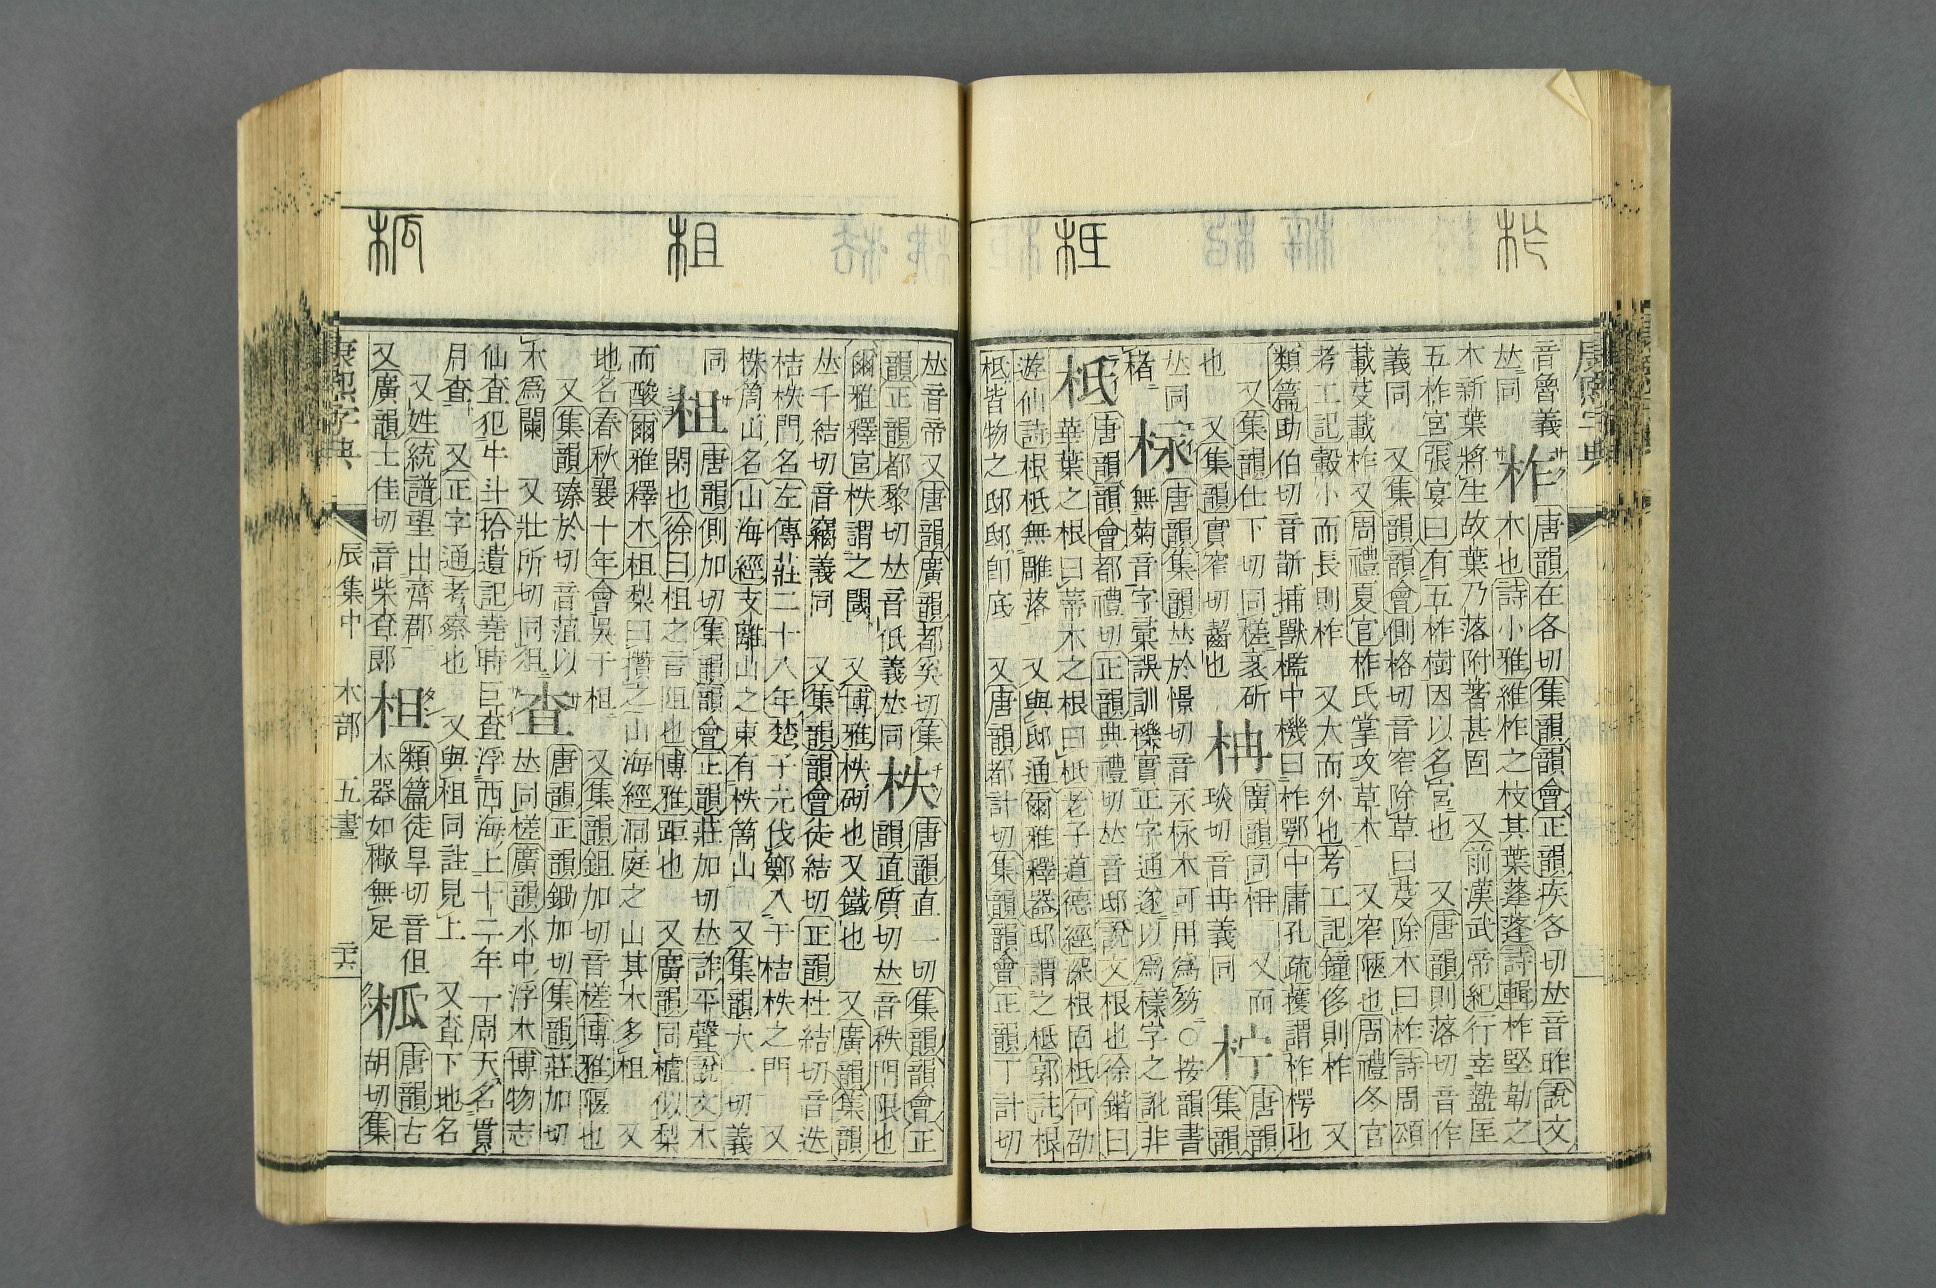 柞
柢
柤
柧
康熙字典
音魯義
丛同
柞 唐韻在各切集韻韻會正韻疾各切丛音昨說文
木也詩小雅維柞之枝其葉蓬蓬詩輯柞堅韌之
木新葉將生故葉乃落附著甚固 又前漢武帝紀行幸盩厔
五柞宮張宴曰有五柞樹因以名宮也 又唐韻則落切音作
義同 又集韻韻會側格切音窄除草曰芟除木曰柞詩周頌
載芟載柞又周禮夏官柞氏掌攻草木 又窄陿也周禮冬官
考工記轂小而長則柞 又大而外也考工記鐘侈則柞 又
類篇助伯切音齚捕獸檻中機曰柞鄂中庸孔疏擭謂柞楞也
又集韻仕下切同槎衺斫
也 又集韻實窄切齰也
柟 廣韻同枏 又而
琰切音冉義同
柠 唐韻
集韻
丛同
楮
柡 唐韻集韻丛於憬切音永柡木可用為笏○按韻書
無菊音字彙誤訓櫟實正字通遂以為樣字之訛非
柢 唐韻韻會都禮切正韻典禮切丛音邸說文根也徐鍇曰
華葉之根曰蒂木之根曰柢老子道德經深根固柢何劭
遊仙詩根柢無雕落 又與邸通爾雅釋器邸謂之柢郭註根
柢皆物之邸邸卽底 又唐韻都計切集韻韻會正韻丁計切
丛音帝又唐韻廣韻都奚切集
韻正韻都黎切丛音低義丛同
柣 唐韻直一切集韻韻會正
韻直質切丛音秩門限也
爾雅釋宮柣謂之閾 又博雅柣砌也又鐵也 又廣韻集韻
丛千結切音竊義同 又集韻韻會徒結切正韻杜結切音迭
桔柣門名左傳莊二十八年楚子元伐鄭入于桔柣之門 又
柣筩山名山海經支離山之東有柣筩山 又集韻大一切義
同
柤 唐韻側加切集韻韻會正韻莊加切丛詐平聲說文木
閑也徐曰柤之言阻也博雅距也 又廣韻同樝似梨
而酸爾雅釋木柤梨曰攢之山海經洞庭之山其木多柤 又
地名春秋襄十年會吳于柤 又集韻鉏加切音槎博雅隁也
又集韻臻於切音菹以
木為闌 又壯所切同俎
査 唐韻正韻鋤加切集韻莊加切
丛同槎廣韻水中浮木博物志
仙査犯牛斗拾遺記堯時巨査浮西海上十二年一周天名貫
月査 又正字通考察也 又與柤同註見上 又査下地名
又姓統譜望出齊郡
又廣韻士佳切音柴査郞
柦 類篇徒旱切音但
木器如橶無足
柧 唐韻古
胡切集
康熙字典 辰集中 木部 五畫 二六